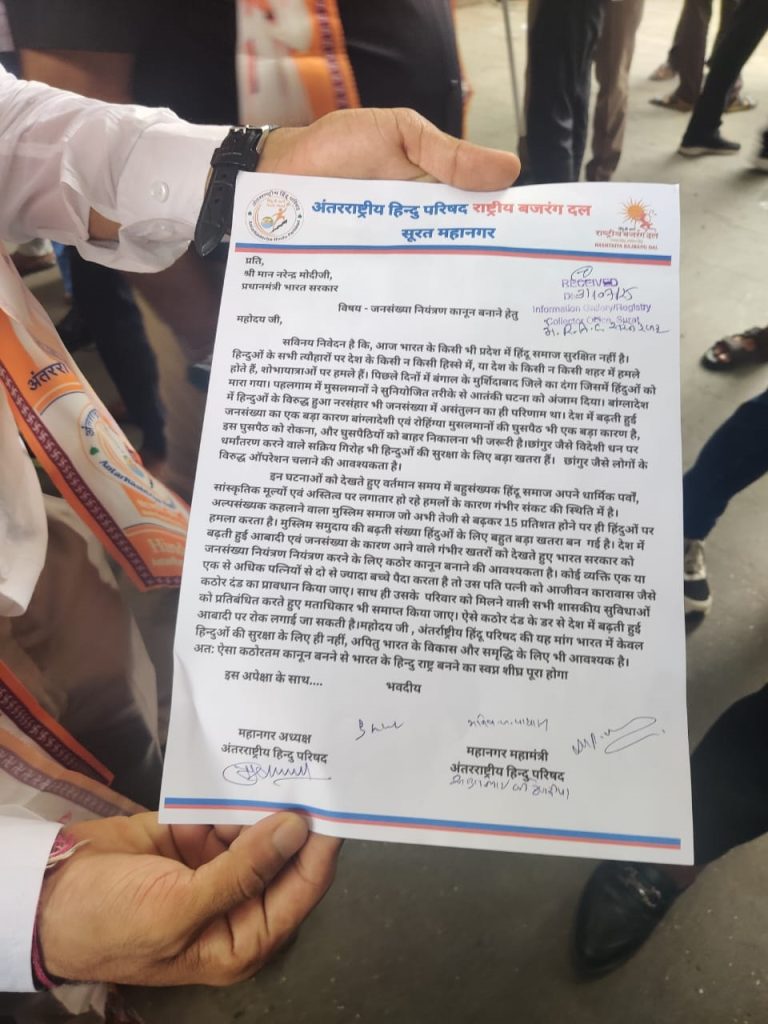 अंतरराष्ट्रीय हिन्दु परिषद राष्ट्रीय बजरंग दल
सूरत महानगर
राष्ट्रीय बजरंग दल
RASHTRIYA BAJRANG DAL
प्रति,
श्री मान नरेन्द्र मोदीजी,
प्रधानमंत्री भारत सरकार
RECEIVED
Information Gallery/Registry
Collector Office, Surat
विषय - जनसंख्या नियंत्रण कानून बनाने हेतु
महोदय जी,
सविनय निवेदन है कि, आज भारत के किसी भी प्रदेश में हिंदू समाज सुरक्षित नहीं है।
हिन्दुओं के सभी त्यौहारों पर देश के किसी न किसी हिस्से में, या देश के किसी न किसी शहर में हमले
होते हैं, शोभायात्राओं पर हमले हैं। पिछले दिनों में बंगाल के मुर्शिदाबाद जिले का दंगा जिसमें हिंदुओं को
मारा गया। पहलगाम में मुसलमानों ने सुनियोजित तरीके से आतंकी घटना को अंजाम दिया। बांग्लादेश
में हिन्दुओं के विरुद्ध हुआ नरसंहार भी जनसंख्या में असंतुलन का ही परिणाम था। देश में बढ़ती हुई
जनसंख्या का एक बड़ा कारण बांग्लादेशी एवं रोहिंग्या मुसलमानों की घुसपैठ भी एक बड़ा कारण है,
इस घुसपैठ को रोकना, और घुसपैठियों को बाहर निकालना भी जरूरी है।छांगुर जैसे विदेशी धन पर
धर्मांतरण करने वाले सक्रिय गिरोह भी हिन्दुओं की सुरक्षा के लिए बड़ा खतरा हैं। छांगुर जैसे लोगों के
विरुद्ध ऑपरेशन चलाने की आवश्यकता है।
इन घटनाओं को देखते हुए वर्तमान समय में बहुसंख्यक हिंदू समाज अपने धार्मिक पर्वों,
सांस्कृतिक मूल्यों एवं अस्तित्व पर लगातार हो रहे हमलों के कारण गंभीर संकट की स्थिति में है।
अल्पसंख्यक कहलाने वाला मुस्लिम समाज जो अभी तेजी से बढ़कर 15 प्रतिशत होने पर ही हिंदुओं पर
हमला करता है। मुस्लिम समुदाय की बढ़ती संख्या हिंदुओं के लिए बहुत बड़ा खतरा बन गई है। देश में
बढ़ती हुई आबादी एवं जनसंख्या के कारण आने वाले गंभीर खतरों को देखते हुए भारत सरकार को
जनसंख्या नियंत्रण नियंत्रण करने के लिए कठोर कानून बनाने की आवश्यकता है। कोई व्यक्ति एक या
एक से अधिक पत्नियों से दो से ज्यादा बच्चे पैदा करता है तो उस पति पत्नी को आजीवन कारावास जैसे
कठोर दंड का प्रावधान किया जाए। साथ ही उसके परिवार को मिलने वाली सभी शासकीय सुविधाओं
को प्रतिबंधित करते हुए मताधिकार भी समाप्त किया जाए। ऐसे कठोर दंड के डर से देश में बढ़ती हुई
आबादी पर रोक लगाई जा सकती है।महोदय जी , अंतर्राष्ट्रीय हिंदू परिषद की यह मांग भारत में केवल
हिन्दुओं की सुरक्षा के लिए ही नहीं, अपितु भारत के विकास और समृद्धि के लिए भी आवश्यक है।
अत: ऐसा कठोरतम कानून बनने से भारत के हिन्दु राष्ट्र बनने का स्वप्न शीघ्र पूरा होगा
इस अपेक्षा के साथ....
भवदीय
महानगर अध्यक्ष
अंतरराष्ट्रीय हिन्दु परिषद
महानगर महामंत्री
अंतरराष्ट्रीय हिन्दु परिषद